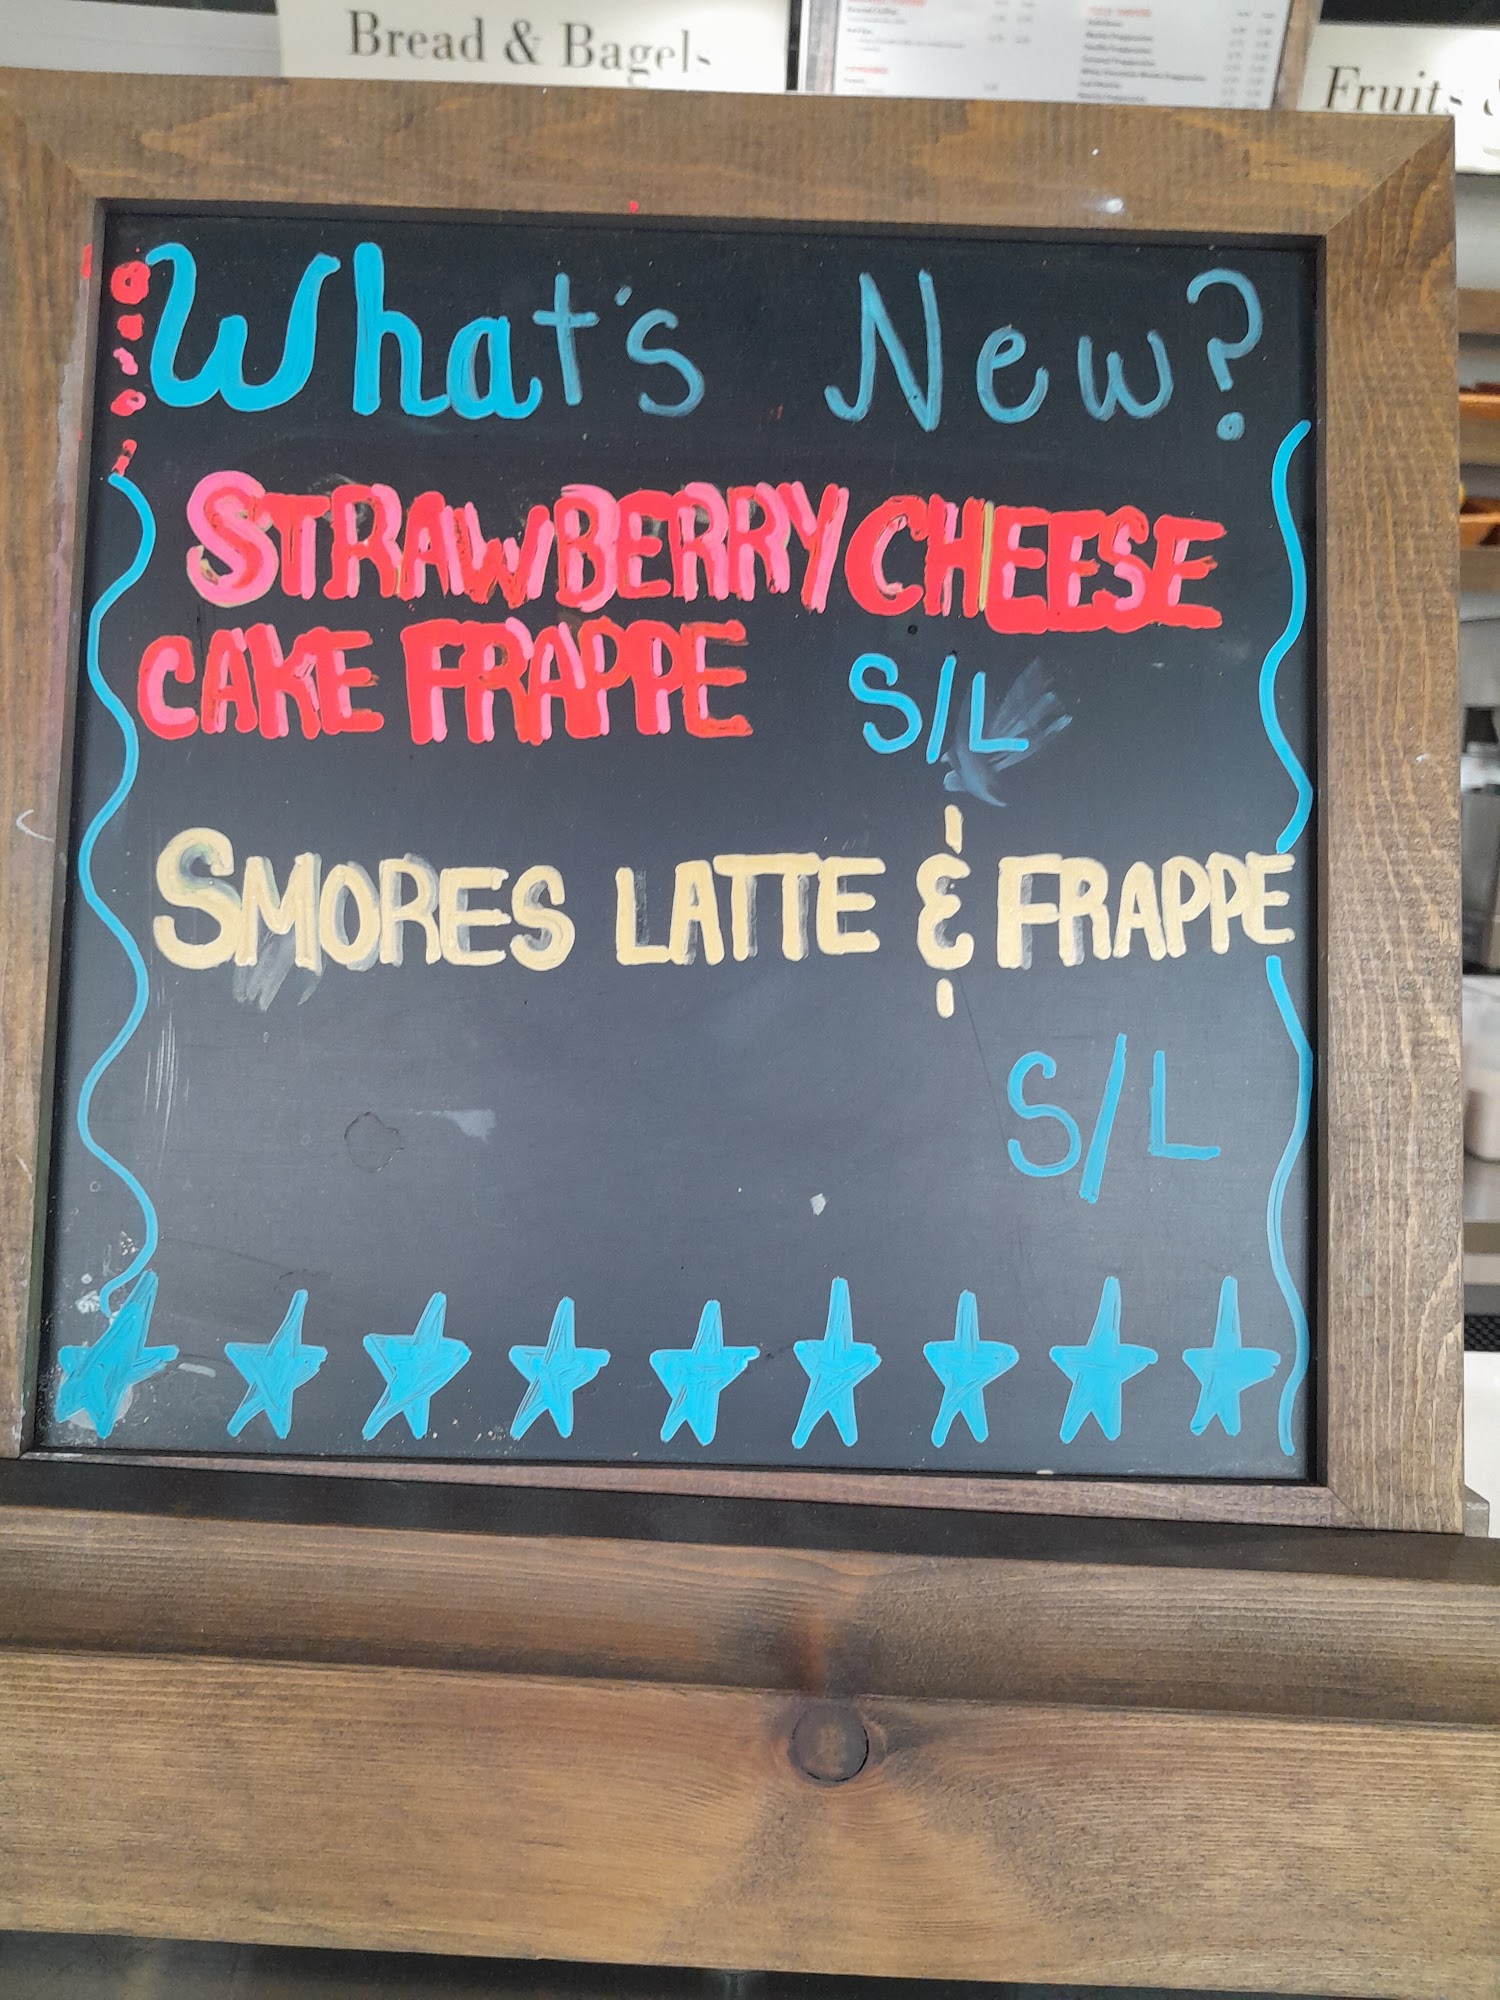 Bread & Bagels
Fruits
What's New?
STRAWBERRY CHEESE
CAKE FRAPPE S/L
SMORES LATTE & FRAPPE
S/L